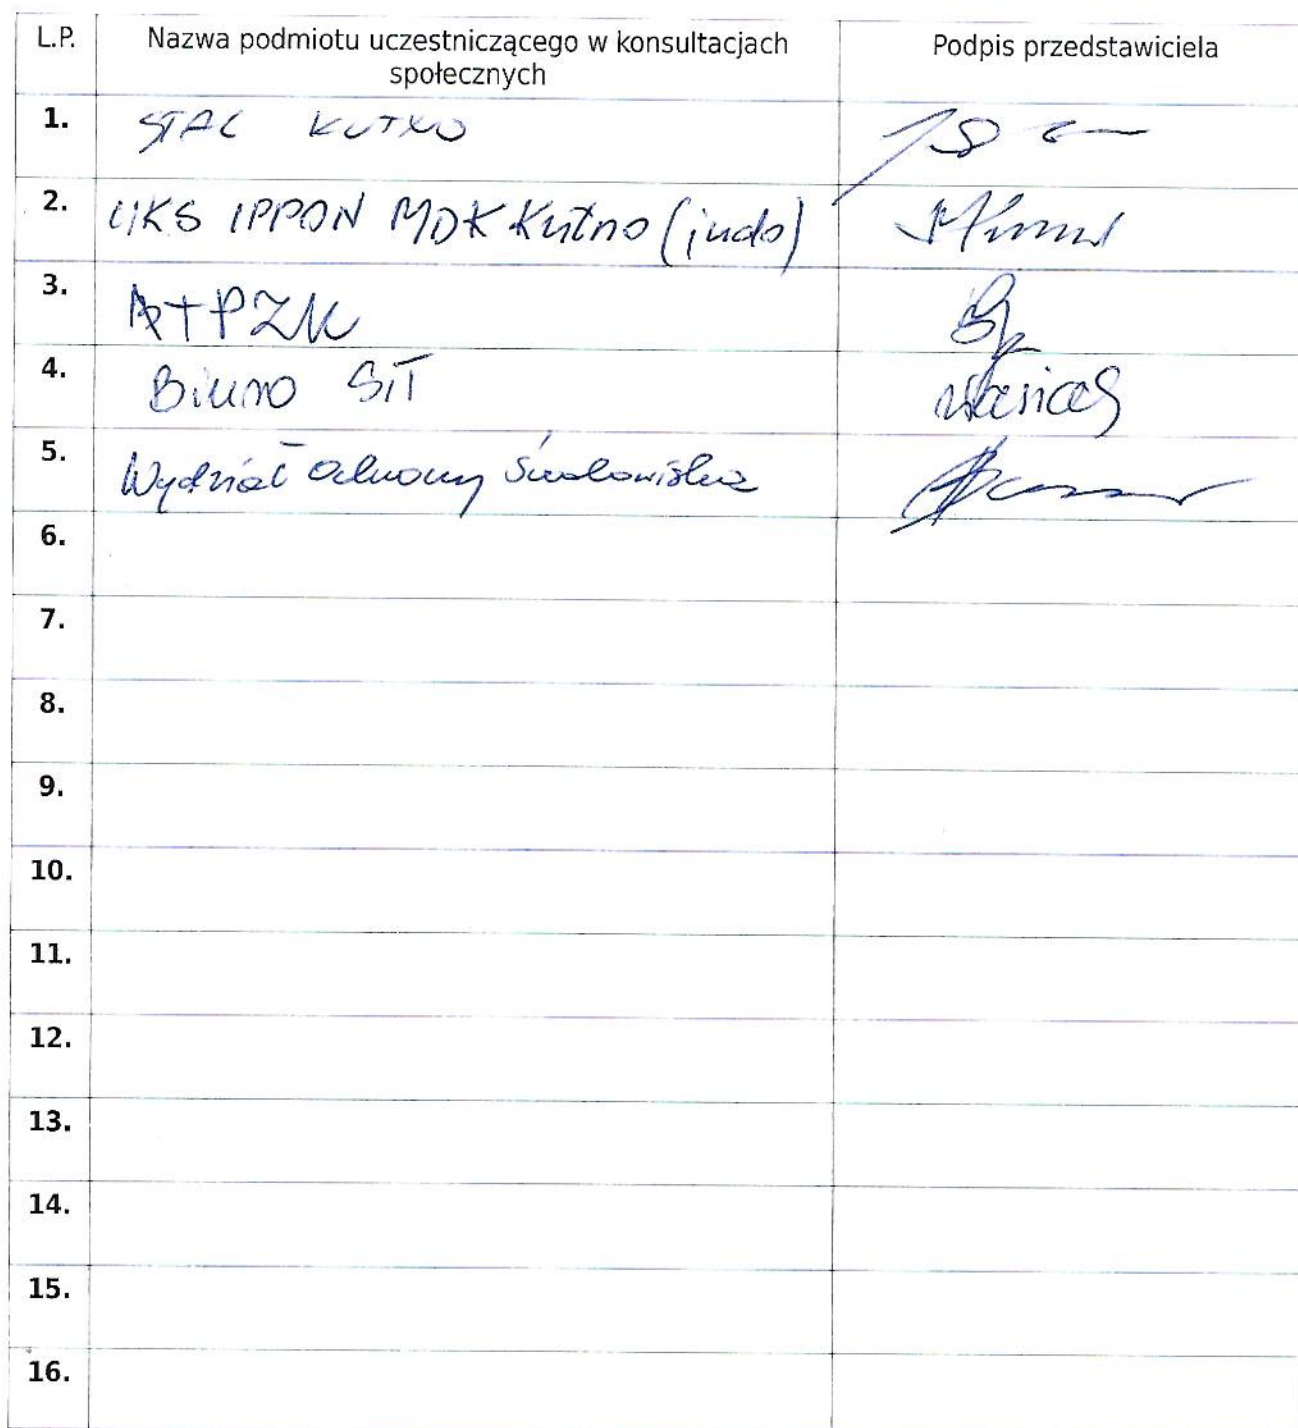 L.P. Nazwa podmiotu uczestniczącego w konsultacjach społecznych Podpis przedstawiciela
1. STAL KUTNO
2. UKS IPPON MDK Kutno (judo)
3. ATPZK
4. Biuro SIT
5. Wydział Ochrony Środowiska
6.
7.
8.
9.
10.
11.
12.
13.
14.
15.
16.